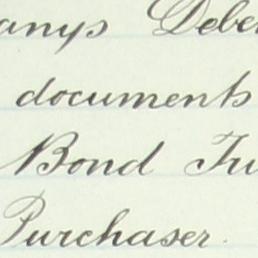 anys Debe
documents
Bond Tu
Purchaser.